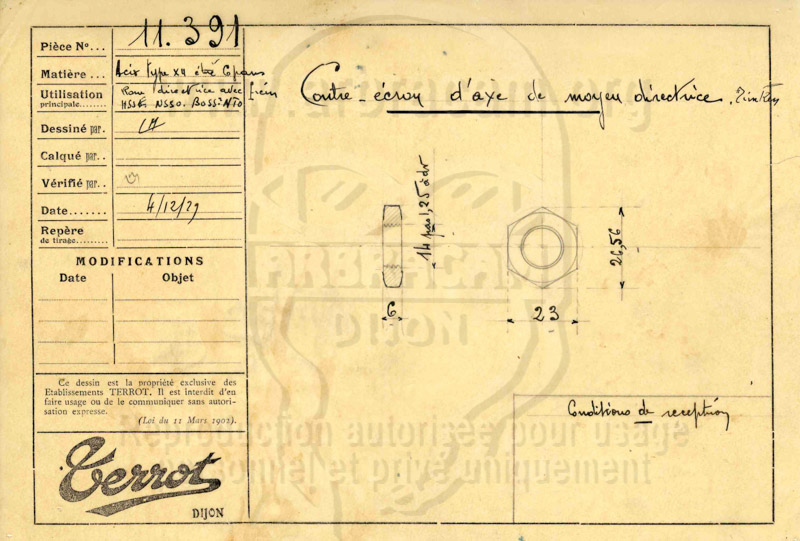 Pièce No... 11.391
Matière... Acier type X4 étiré 6 pans
Utilisation principale... Pour directrice avec frein
HSSE NSSO. BOSS. NTO
Dessiné par. LH
Calqué par..
Vérifié par..
Date....... 4/12/29
Repère de tirage...
MODIFICATIONS
Date Objet
Ce dessin est la propriété exclusive des
Etablissements TERROT. Il est interdit d'en
faire usage ou de le communiquer sans autori-
sation expresse.
(Loi du 11 Mars 1902).
Terrot
DIJON
Contre-écrou d'axe de moyeu directrice.
14 pas 1,25 à dr
6
23
26,56
Conditions de reception
ARBRACAM
DIJON
Reproduction autorisée pour usage
personnel et privé uniquement